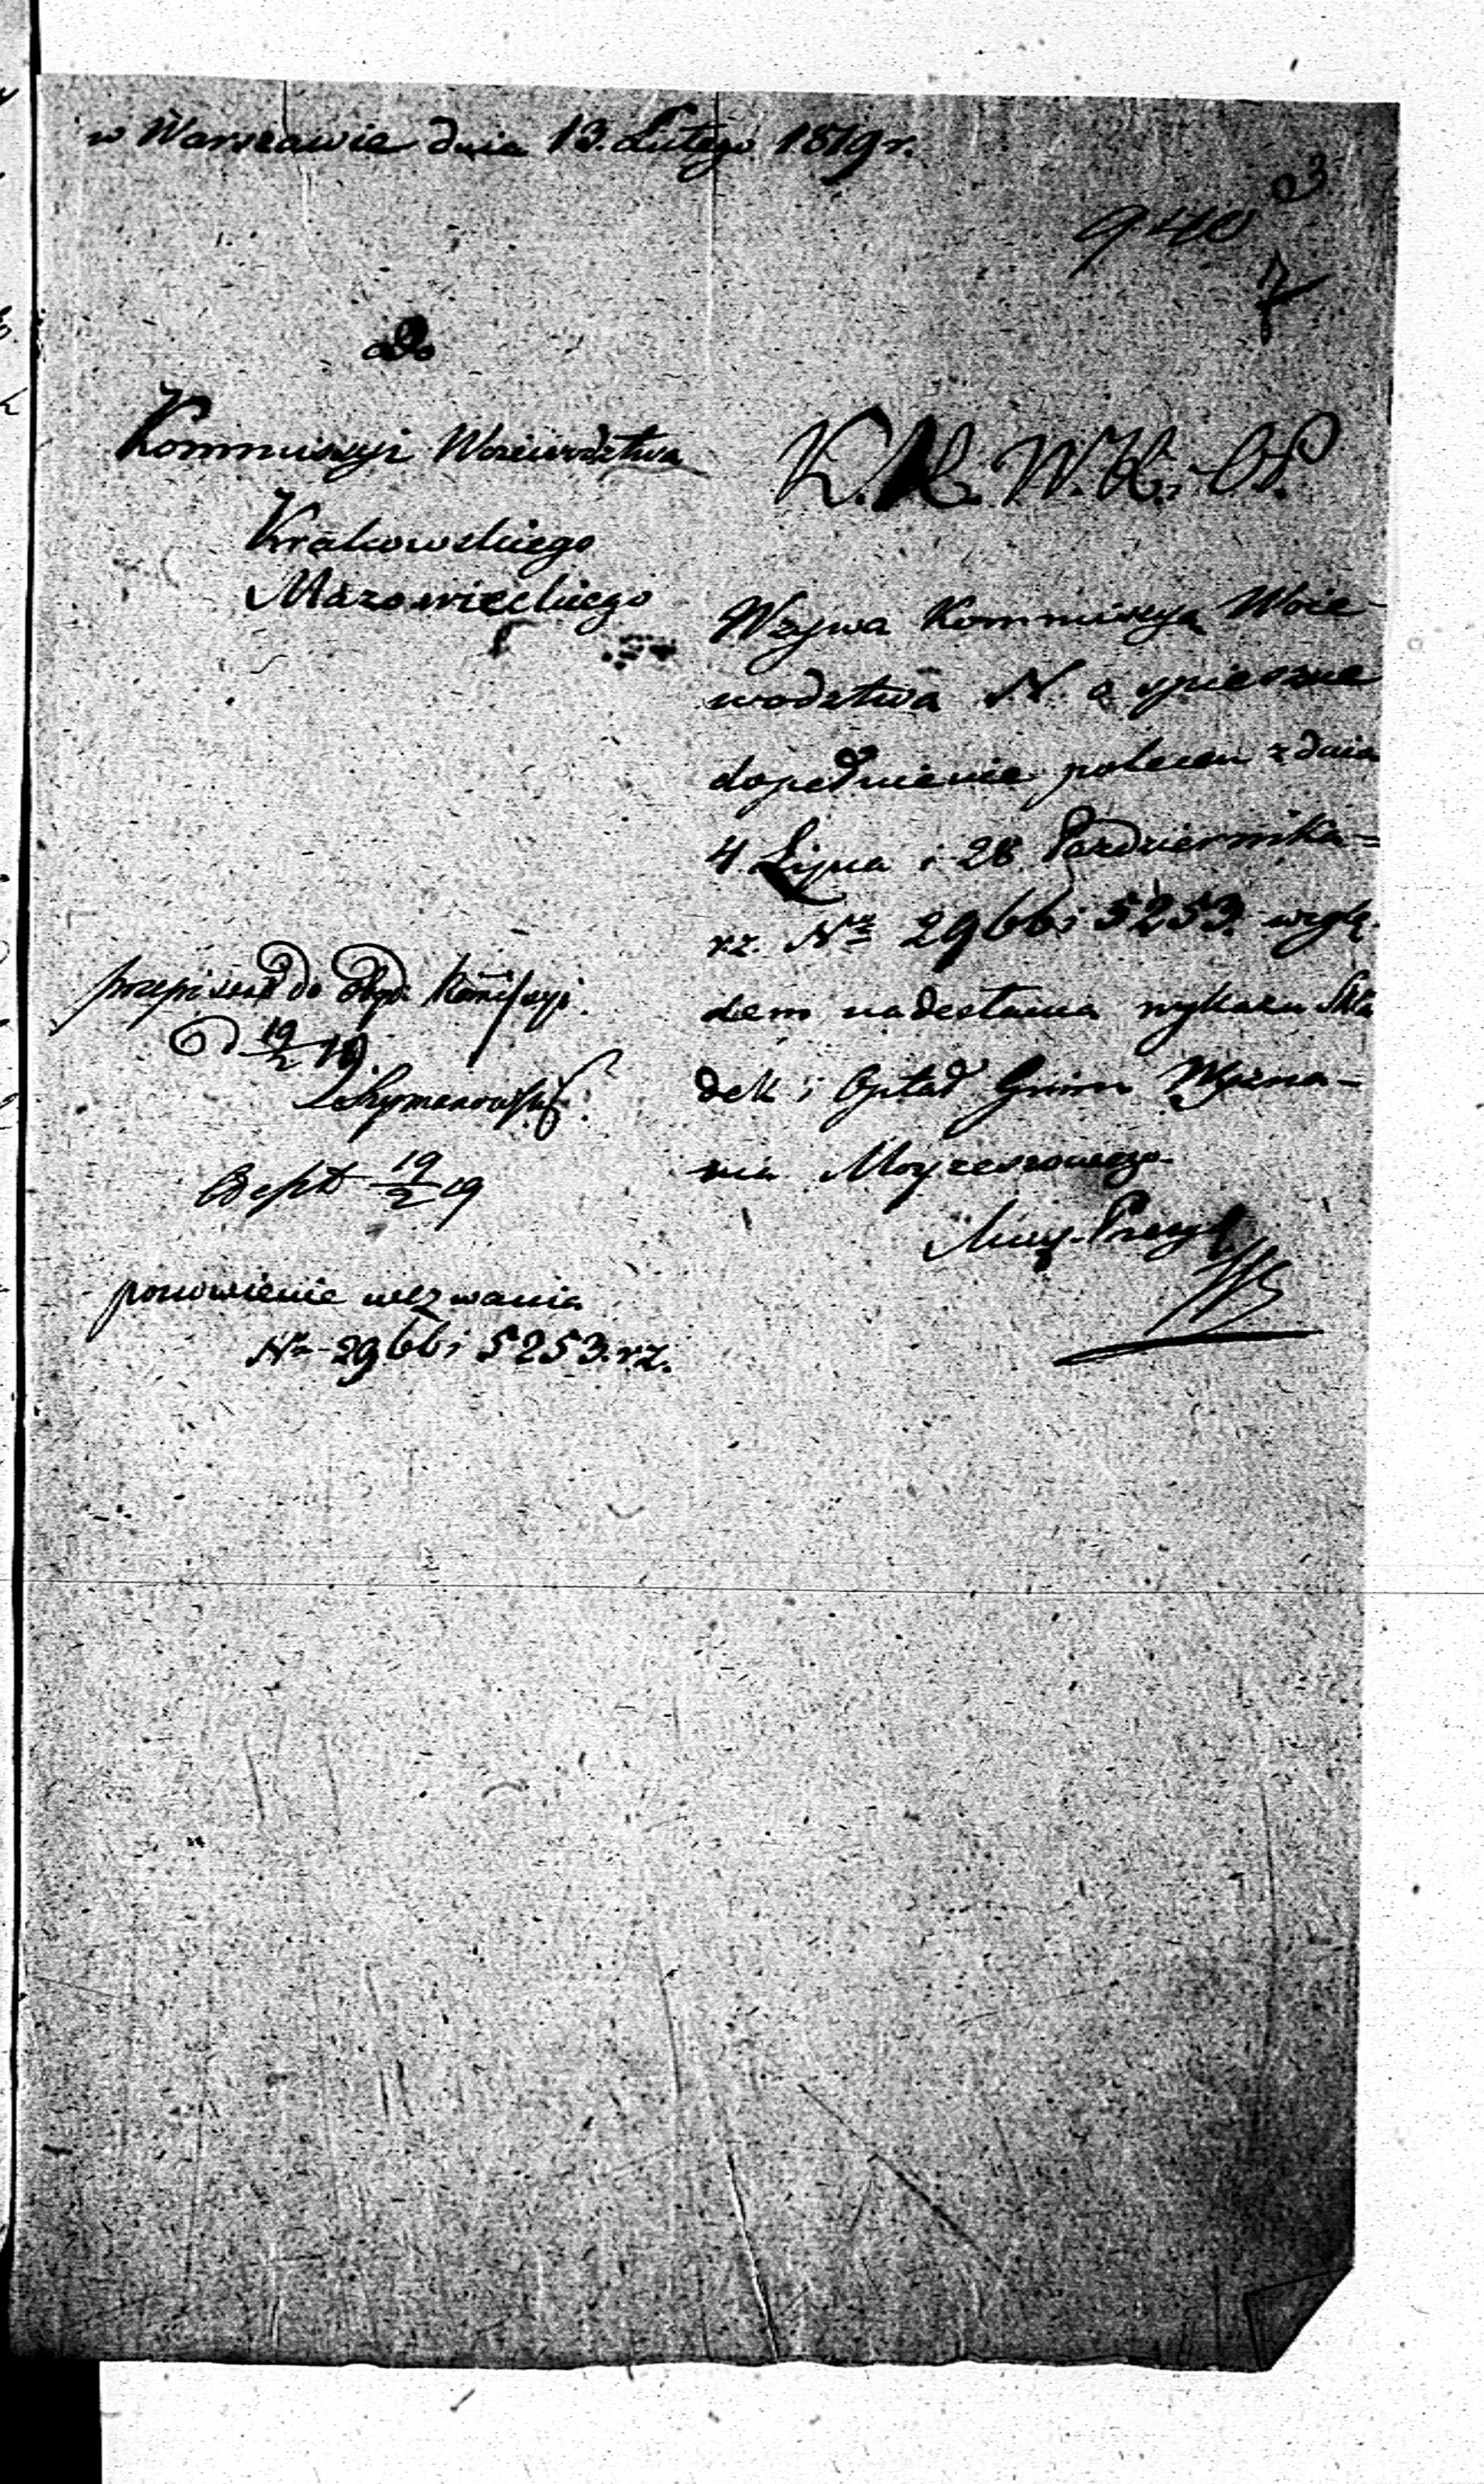 w Warszawie dnia 13. Lutego 1819 r.
3
940
7
Do
Kommissyi Woiewodztwa
Krakowskiego
Mazowieckiego
K. R. W. R. i O. P.
Wzywa Kommissyą Woie-
wodztwa N. o spieszne
dopełnienie poleceń z dnia
4 Lipca i 28 Października=
r.z. Nr 2966 i 5253. wzglę-
dem nadesłania wykazu Skła
dek i Opłat Gmin Wyzna-
nia Moyżeszowego
przepisano do Kommissyi
d 19/2 19.
Szymanowski
Exp d 19/2 19
ponowienie wezwania
Nr 2966 i 5253. r.z.